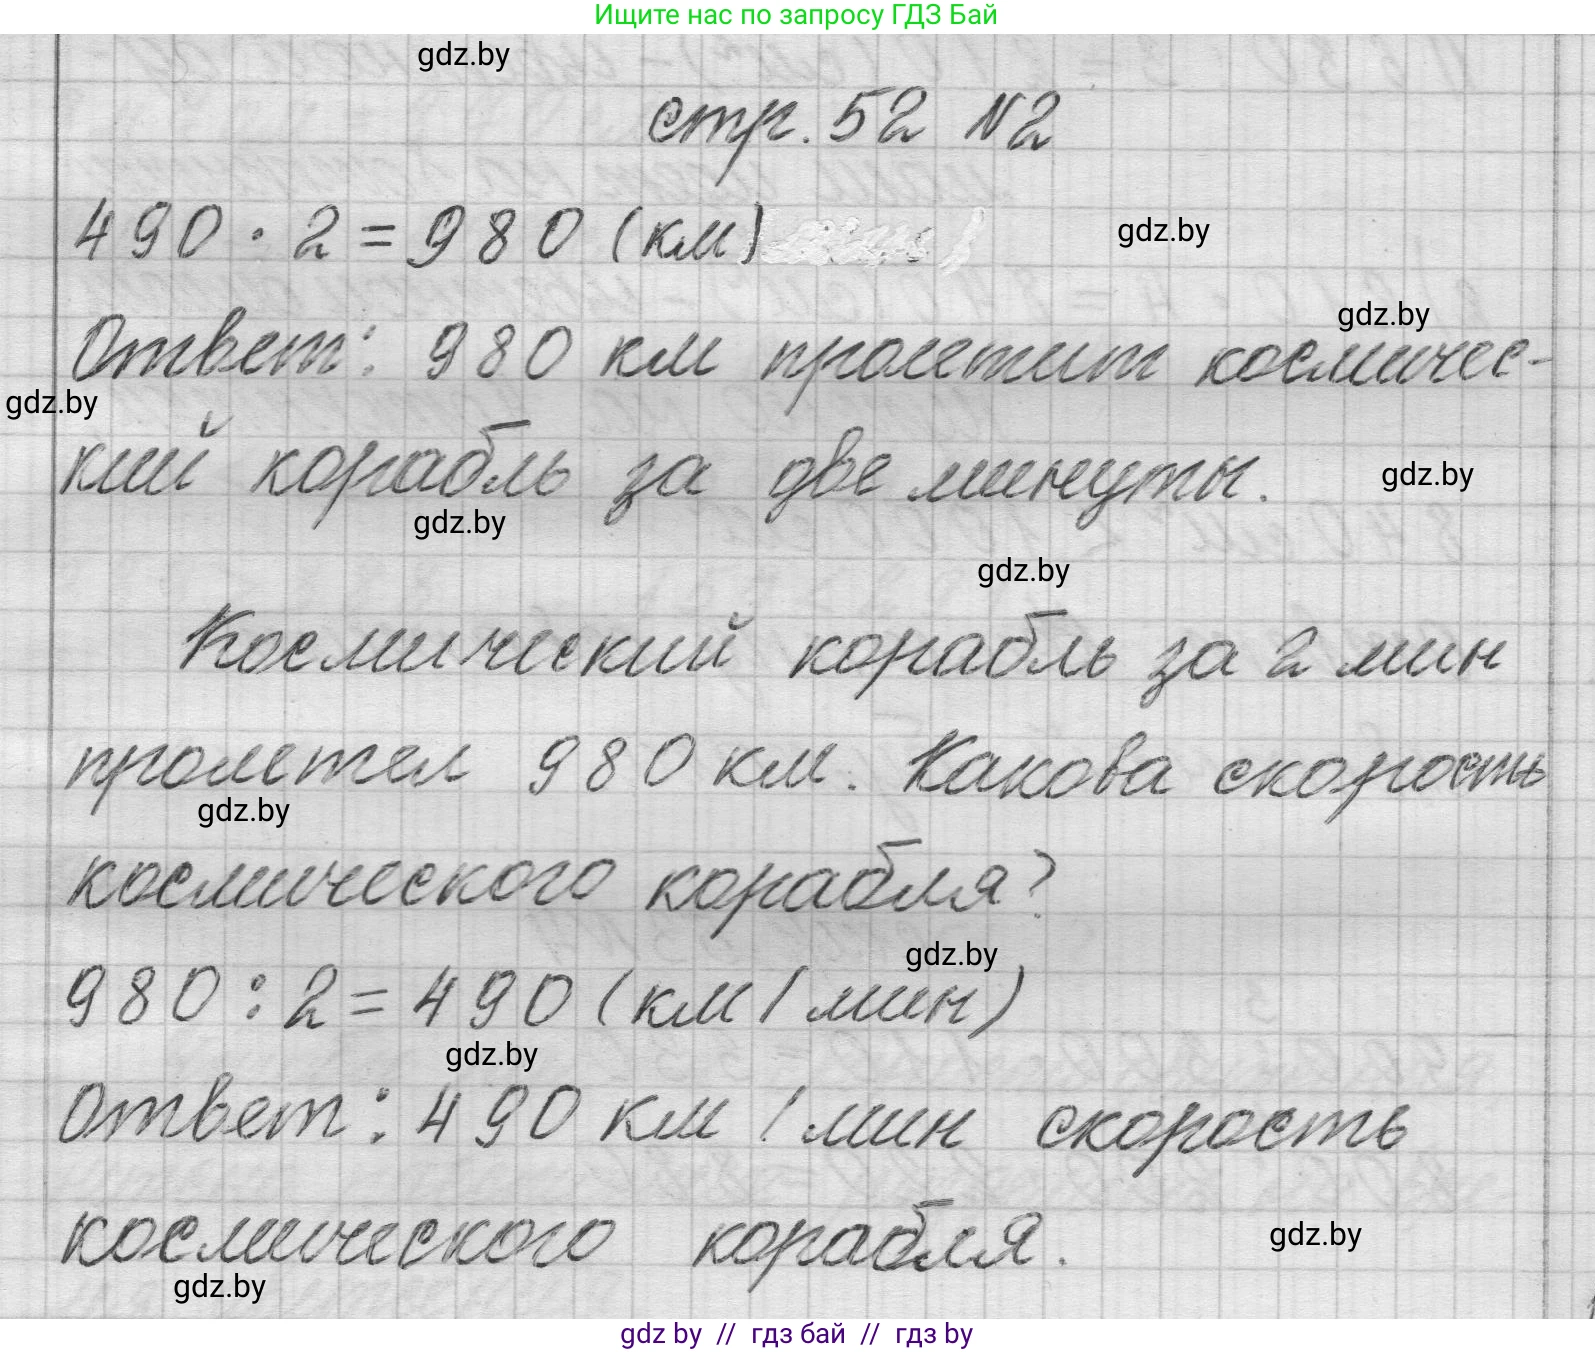 Ищите нас по запросу ГДЗ Бай
gdz.by
стр. 52 №2
490 · 2 = 980 (км)
gdz.by
gdz.by
Ответ: 980 км пролетит космичес-
gdz.by
кий корабль за две минуты.
gdz.by
gdz.by
gdz.by
Космический корабль за 2 мин
пролетел 980 км. Какова скорость
gdz.by
космического корабля?
gdz.by
980 : 2 = 490 (км/мин)
gdz.by
Ответ: 490 км/мин скорость
космического корабля.
gdz.by
gdz.by
gdz by // гдз бай // гдз by